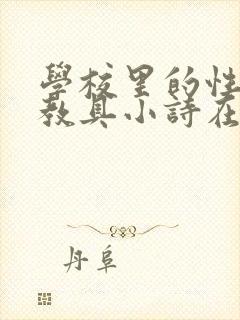 學校里的性
教具小詩在
丹阜